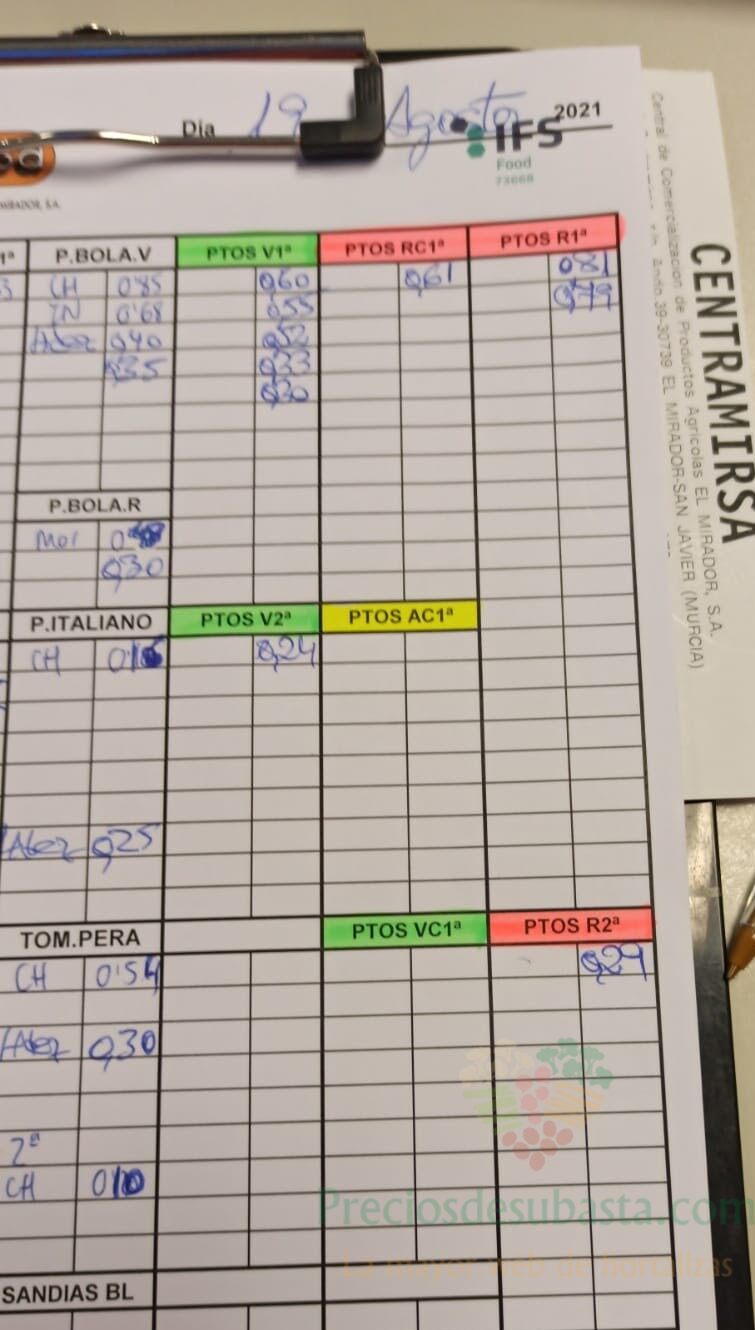 Dia 19 Agosto 2021
IFS
Food
73668
MIRADOR, S.A.
1ª P.BOLA.V PTOS V1ª PTOS RC1ª PTOS R1ª
CH 0'85 0,60 0,61 0,81
IN 0'68 0,55 0,79
0,40 0,52
0,35 0,33
0,30
P.BOLA.R
Mol
0,30
P.ITALIANO PTOS V2ª PTOS AC1ª
CH 0,24
0,25
TOM.PERA PTOS VC1ª PTOS R2ª
CH 0'54 0,29
0,30
2ª
CH 010
SANDIAS BL
CENTRAMIRSA
Central de Comercialización de Productos Agrícolas EL MIRADOR, S.A.
39-30739 EL MIRADOR-SAN JAVIER (MURCIA)
Preciosdesubasta.com
La mayor web de hortalizas